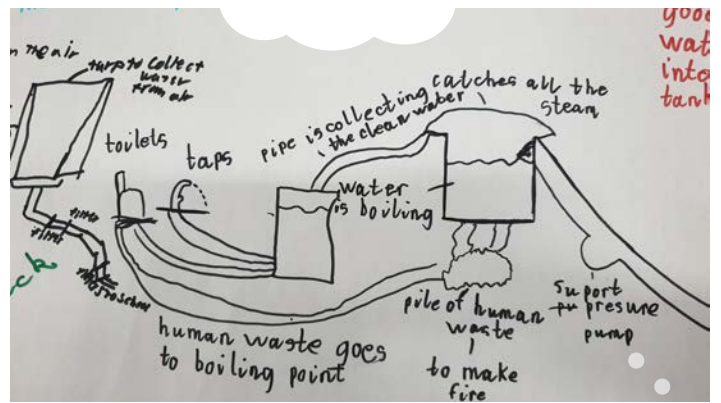 the air
tarp to collect
water
from air
toilets
taps
pipe is collecting
the clean water
catches all the
steam
good
wat
into
tank
water
is boiling
filter
filter
ck
human waste goes
to boiling point
pile of human
waste
to make
fire
suport
presure
pump